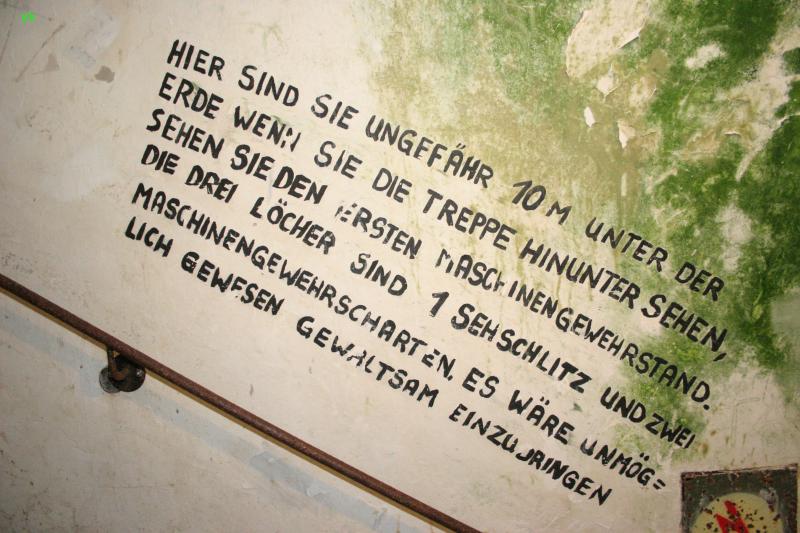 HIER SIND SIE UNGEFÄHR 10 M UNTER DER
ERDE WENN SIE DIE TREPPE HINUNTER SEHEN,
SEHEN SIE DEN ERSTEN MASCHINENGEWEHRSTAND.
DIE DREI LÖCHER SIND 1 SEHSCHLITZ UND ZWEI
MASCHINENGEWEHRSCHARTEN. ES WÄRE UNMÖG=
LICH GEWESEN GEWALTSAM EINZUDRINGEN